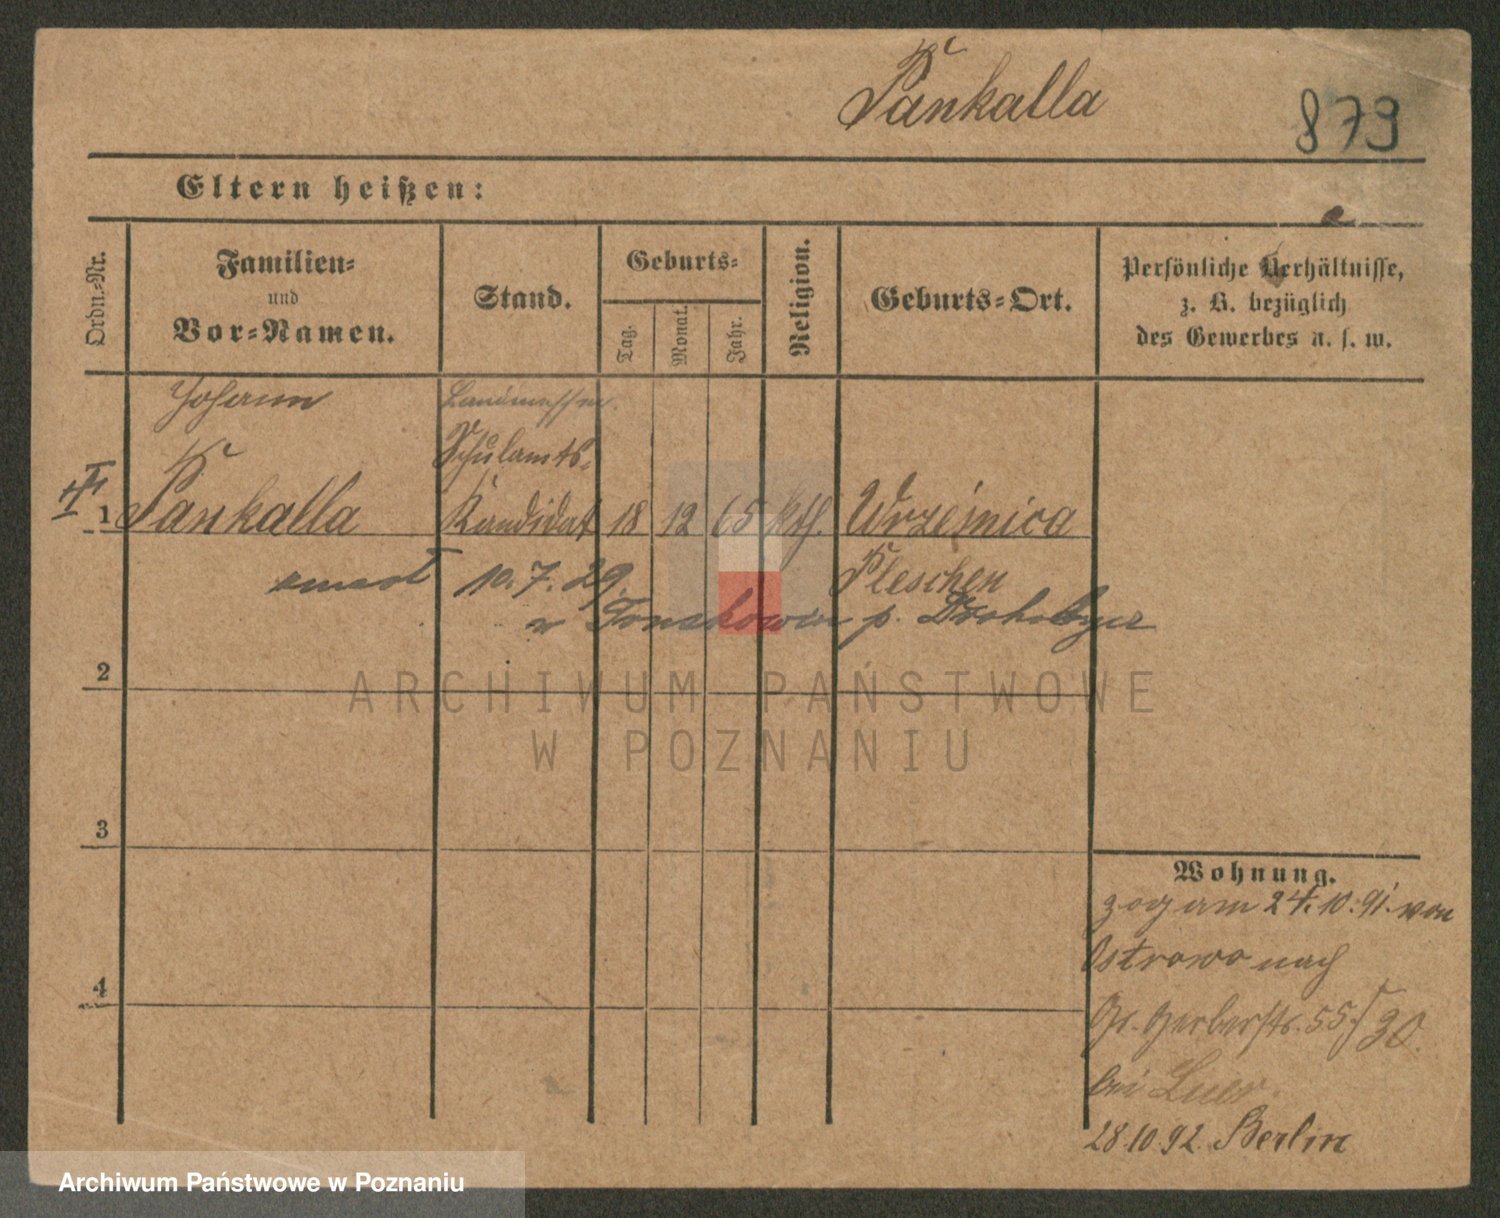 Pankalla
873
Eltern heißen:
Ordn.-Nr.
Familien-
und
Vor-Namen.
Stand.
Geburts-
Tag.
Monat.
Jahr.
Religion.
Geburts-Ort.
Persönliche Verhältnisse,
z. B. bezüglich
des Gewerbes u. s. w.
Johann
Landmesser.
Schulamts-
1 Pankalla Kandidat 18 12 65 kth. Wrześnica
Pleschen
10. 7. 29.
w p. Drohobycz
2
ARCHIWUM PAŃSTWOWE
W POZNANIU
3
4
Wohnung.
zog am 24.10.91. von
Ostrowo nach
Gr. Gerberstr. 55.
bei
28.10.92. Berlin
Archiwum Państwowe w Poznaniu